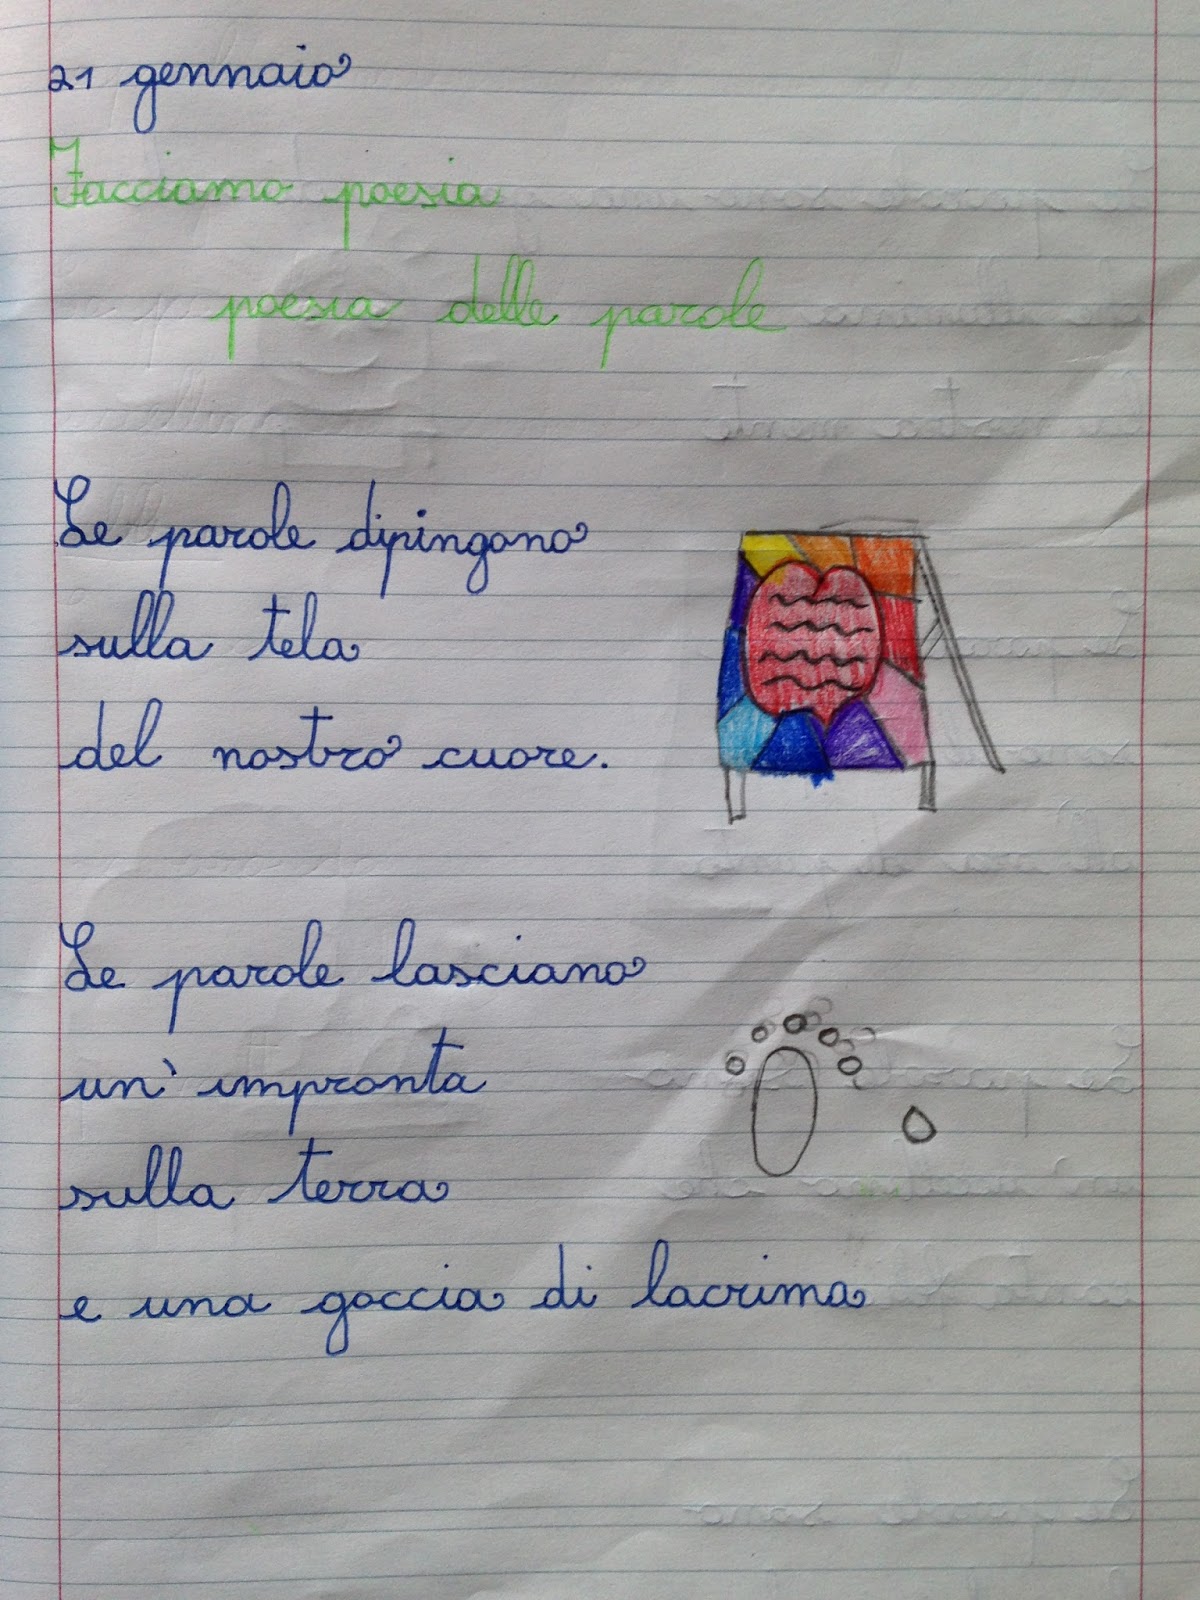 21 gennaio
Facciamo poesia
poesia delle parole
Le parole dipingono
sulla tela
del nostro cuore.
Le parole lasciano
un' impronta
sulla terra
e una goccia di lacrima